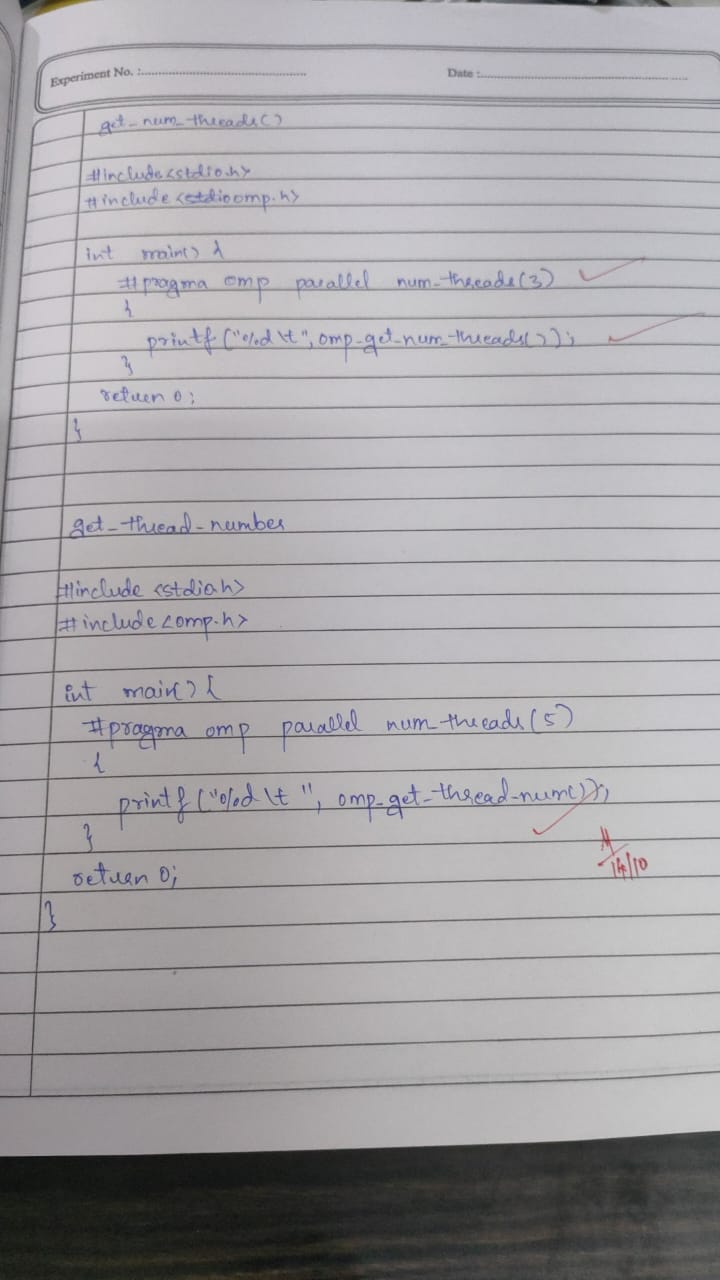 Experiment No. :
Date :
get_num_threads()
#include<stdio.h>
#include <stdioomp.h>
int main() {
#pragma omp parallel num_threads(3)
{
printf("%d\t", omp_get_num_threads());
}
return 0;
}
get_thread_number
#include <stdio.h>
#include<omp.h>
int main() {
#pragma omp parallel num_threads(5)
{
printf("%d\t ", omp_get_thread_num());
}
return 0;
}
14/10